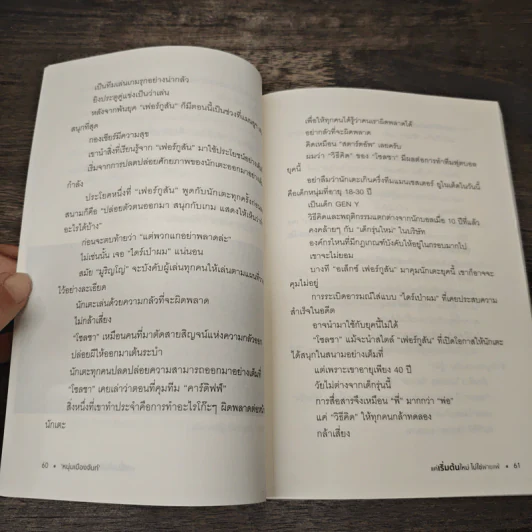 เป็นทีมเล่นเกมรุกอย่างน่ากลัว
ยิงประตูคู่แข่งเป็นว่าเล่น
หลังจากพ้นยุค "เฟอร์กูสัน" ก็มีตอนนี้เป็นช่วงที่แมนยูฯ
สนุกที่สุด
กองเชียร์มีความสุข
เขานำสิ่งที่เรียนรู้จาก "เฟอร์กูสัน" มาใช้ประโยชน์อย่างเต็มที่
เริ่มจากการปลดปล่อยศักยภาพของนักเตะออกมาอย่าง
กำลัง
ประโยคหนึ่งที่ "เฟอร์กูสัน" พูดกับนักเตะทุกครั้งก่อน
สนามก็คือ "ปล่อยตัวตนออกมา สนุกกับเกม แสดงให้เห็นว่า
อะไรได้บ้าง"
ก่อนจะตบท้ายว่า "แต่พวกแกอย่าพลาดล่ะ"
ไม่เช่นนั้น เจอ "ไดร์เป่าผม" แน่นอน
สมัย "มูรินโญ่" จะบังคับผู้เล่นทุกคนให้เล่นตามแผนที่วาง
ไว้อย่างละเอียด
นักเตะเล่นด้วยความกลัวที่จะผิดพลาด
ไม่กล้าเสี่ยง
"โซลชา" เหมือนคนที่มาตัดสายสิญจน์แห่งความกลัวออก
ปล่อยผีให้ออกมาเต้นระบำ
นักเตะทุกคนปลดปล่อยความสามารถออกมาอย่างเต็มที่
"โซลชา" เคยเล่าว่าตอนที่คุมทีม "คาร์ดิฟฟ์"
สิ่งหนึ่งที่เขาทำประจำคือการทำอะไรโก๊ะๆ ผิดพลาดต่อหน้า
นักเตะ
60 • 'หนุ่มเมืองจันท์'
เพื่อให้ทุกคนได้รู้ว่าคนเราผิดพลาดได้
อย่ากลัวที่จะผิดพลาด
คิดเหมือน "สตาร์ตอัพ" เลยครับ
ผมว่า "วิธีคิด" ของ "โซลชา" มีผลต่อการทำทีมฟุตบอล
ยุคนี้
อย่าลืมว่านักเตะเกินครึ่งทีมแมนเชสเตอร์ ยูไนเต็ดในวันนี้
คือเด็กหนุ่มที่อายุ 18-30 ปี
เป็นเด็ก GEN Y
วิธีคิดและพฤติกรรมแตกต่างจากนักบอลเมื่อ 10 ปีที่แล้ว
คงคล้ายๆ กับ "เด็กรุ่นใหม่" ในบริษัท
องค์กรไหนที่มีกฎเกณฑ์บังคับให้อยู่ในกรอบมากไป
เขาจะไม่ยอม
บางที "อเล็กซ์ เฟอร์กูสัน" มาคุมนักเตะยุคนี้ เขาก็อาจจะ
คุมไม่อยู่
การระเบิดอารมณ์ใส่แบบ "ไดร์เป่าผม" ที่เคยประสบความ
สำเร็จในอดีต
อาจนำมาใช้กับยุคนี้ไม่ได้
"โซลชา" แม้จะนำสไตล์ "เฟอร์กูสัน" ที่เปิดโอกาสให้นักเตะ
ได้สนุกในสนามอย่างเต็มที่
แต่เพราะเขาอายุเพียง 40 ปี
วัยไม่ต่างจากเด็กรุ่นนี้
การสื่อสารจึงเหมือน "พี่" มากกว่า "พ่อ"
แต่ "วิธีคิด" ให้ทุกคนกล้าทดลอง
กล้าเสี่ยง
แค่เริ่มต้นใหม่ ไม่ใช่พ่ายแพ้ • 61